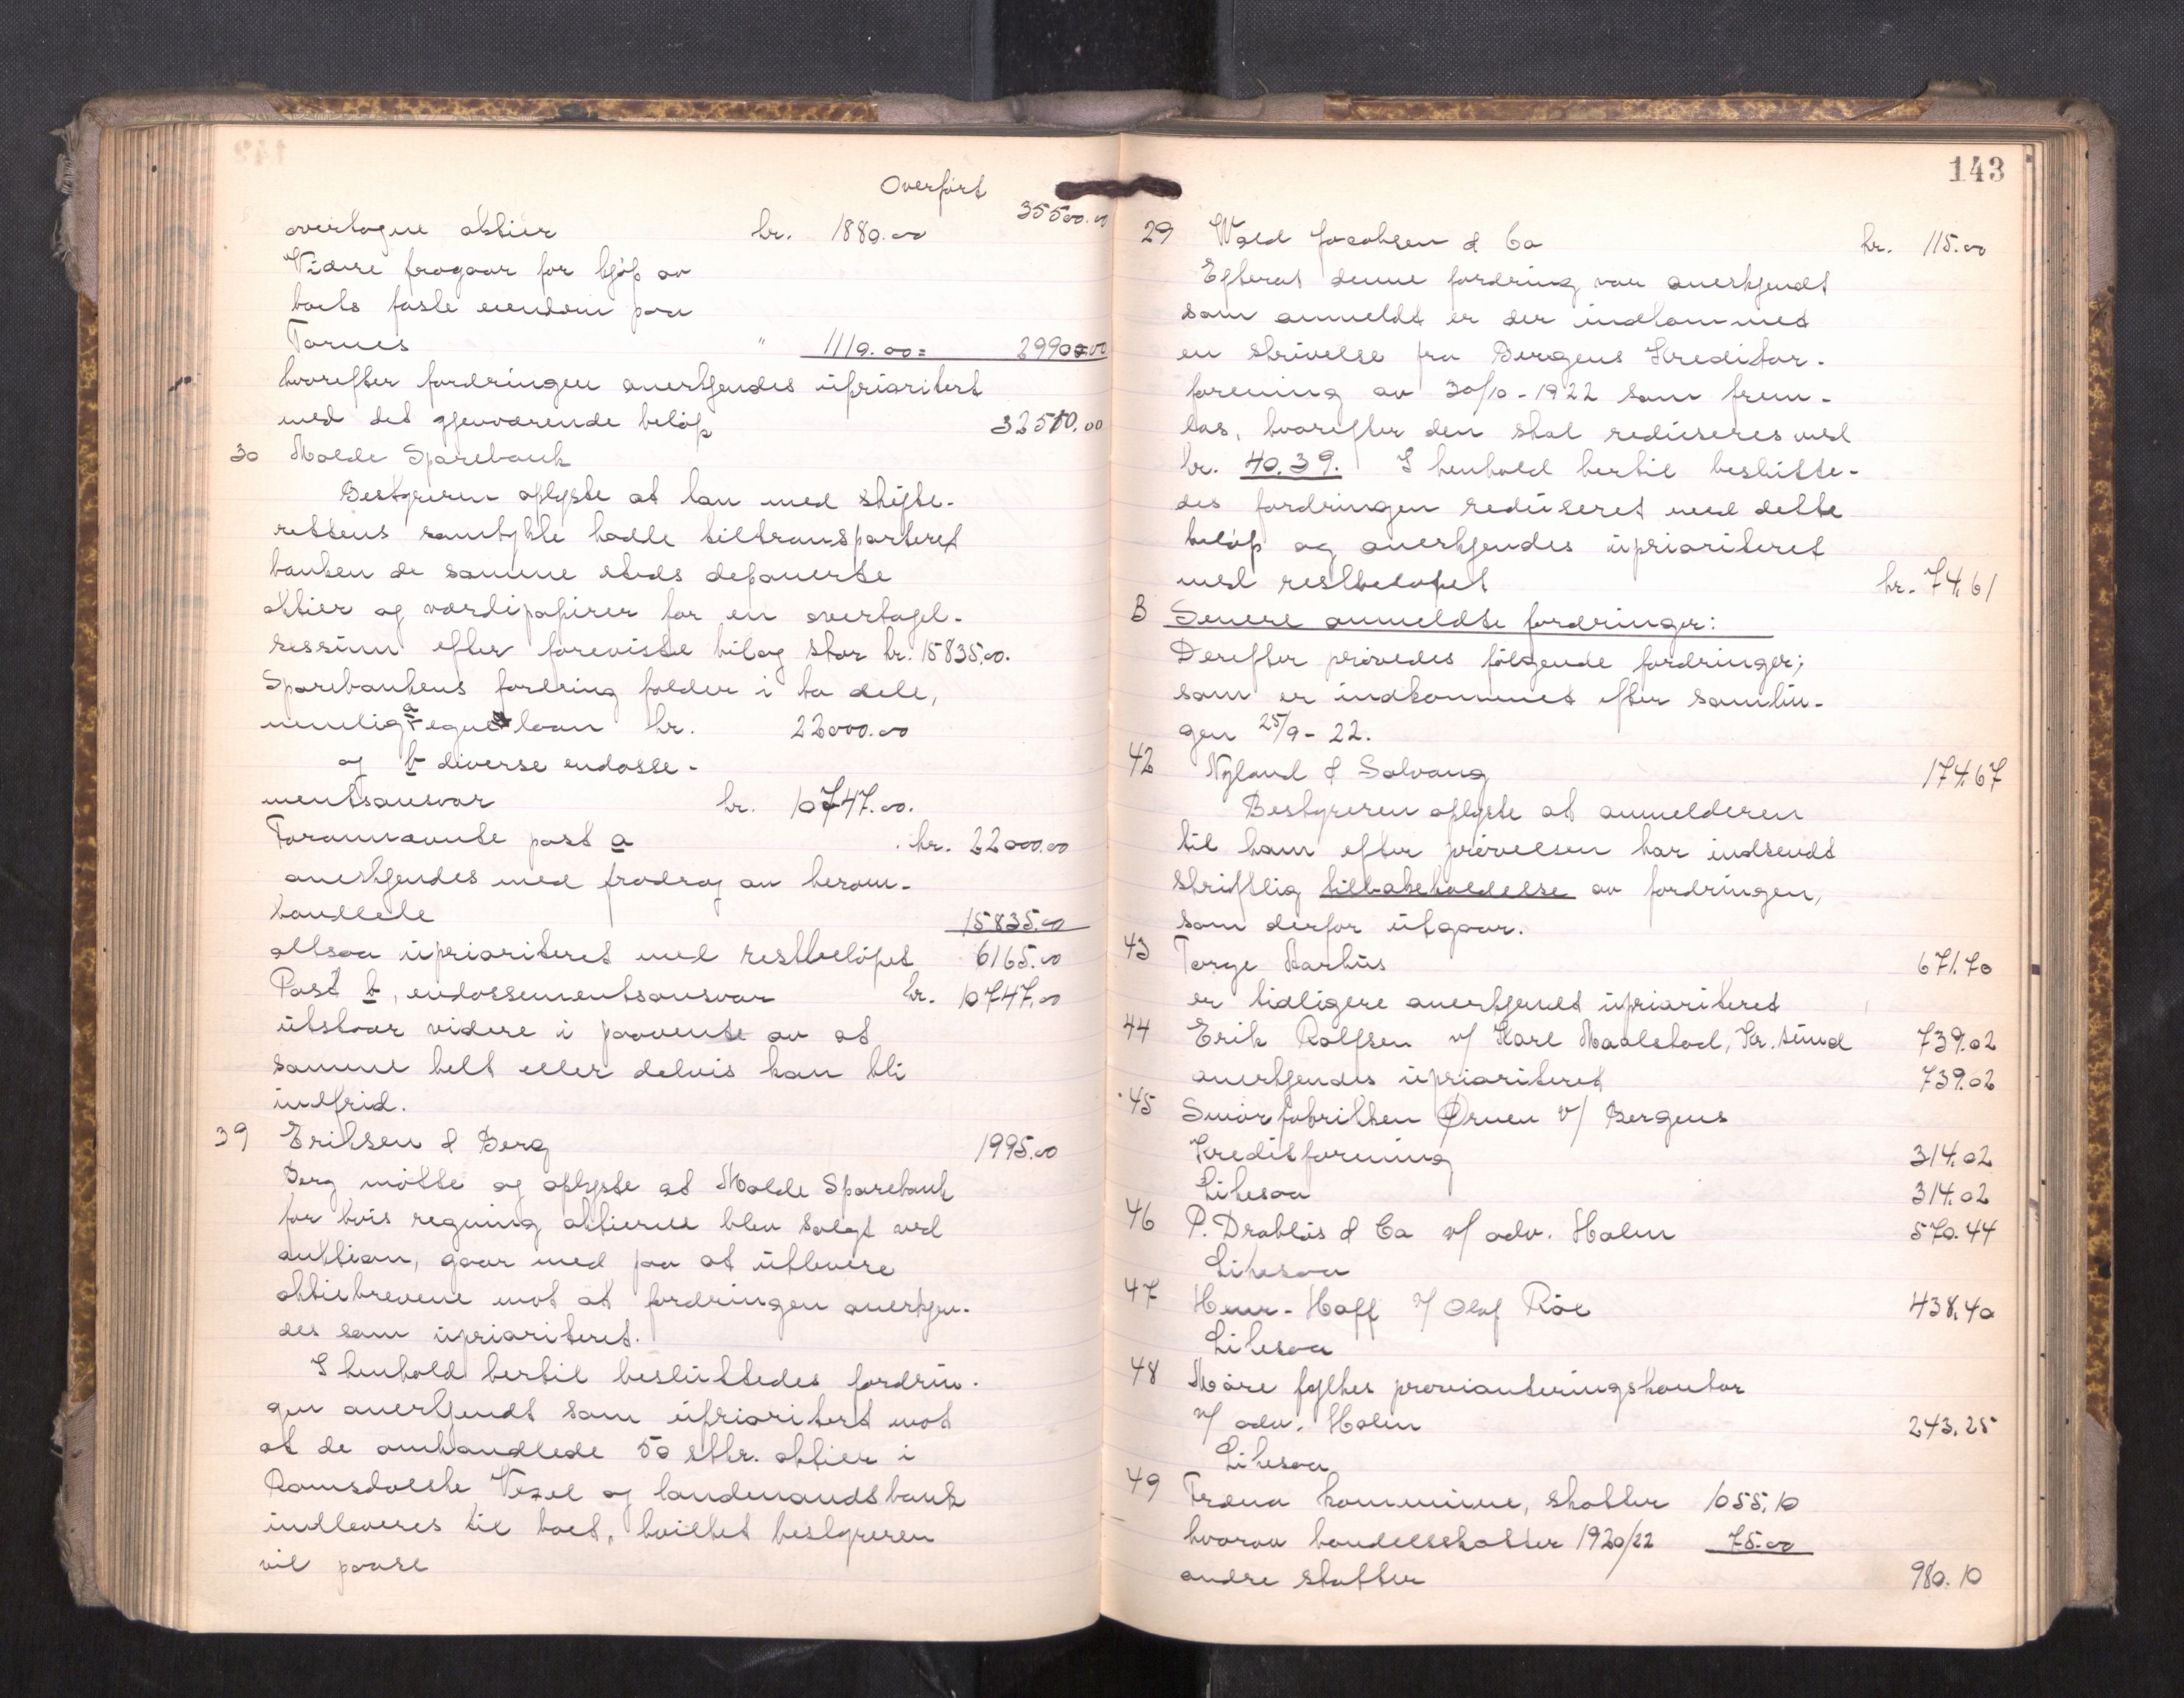 Overført
35500.00
overtagne aktier kr. 1880.00
Videre fragaar for kjøp av
boets faste eiendom paa
Tornes " 1110.00 = 2990.00
hvorefter fordringen anerkjendes uprioritert
med det gjenværende beløp 32510.00
30 Molde Sparebank
Bestyreren oplyste at han med skifte-
rettens samtykke hadde tiltransporteret
banken de samme steds deponerte
aktier og værdipapirer for en overtagel-
sessum efter foreviste bilag stor kr. 15835.00.
Sparebankens fordring falder i to dele,
nemlig a eget laan kr. 22000.00
og b diverse endosse-
mentsansvar kr. 10747.00.
Forannævnte post a kr. 22000.00
anerkjendes med fradrag av herom-
handlede 15835.00
altsaa uprioriteret med restbeløpet 6165.00
Post b, endossementsansvar kr. 10747.00
utstaar videre i paavente av at
samme helt eller delvis kan bli
indfrid.
39 Eriksen & Berg 1995.00
Berg møtte og oplyste at Molde Sparebank
for hvis regning aktierne blev solgt ved
auktion, gaar med paa at utlevere
aktiebrevene mot at fordringen anerkjen-
des som uprioriteret.
I henhold hertil besluttedes fordrin-
gen anerkjendt som uprioritert mot
at de omhandlede 50 stkr. aktier i
Romsdalske Vexel og landmandsbank
indleveres til boet, hvilket bestyreren
vil paase
143
29 Wald Jacobsen & Co kr. 115.00
Efterat denne fordring var anerkjendt
som anmeldt er der indkommet
en skrivelse fra Bergens Kreditor-
forening av 30/10-1922 som frem-
las, hvorefter den skal reduseres med
kr. 40.39. I henhold hertil beslutte-
des fordringen reduseret med dette
beløp og anerkjendes uprioriteret
med restbeløpet kr. 74.61
B Senere anmeldte fordringer:
Derefter prøvedes følgende fordringer;
som er indkommet efter samlin-
gen 25/9-22.
42 Nyland & Solvang 174.67
Bestyreren oplyste at anmelderen
til ham efter prøvelsen har indsendt
skriftlig tilbakekaldelse av fordringen,
som derfor utgaar.
43 Torge Aarhus 671.70
er tidligere anerkjendt uprioriteret
44 Erik Rolfsen v/ Karl Maalstad, Kr.sund 739.02
anerkjendes uprioriteret 739.02
45 Smørfabrikken Ørnen v/ Bergens
Kreditforening 314.02
Likesaa 314.02
46 P. Drabløs & Co v/ adv. Holm 570.44
Likesaa
47 Henr. Hoff v/ Olaf Röe 438.40
Likesaa
48 Møre fylkes provianteringskontor
v/ adv. Holm 243.25
Likesaa
49 Fræna kommune, skatter 1055.10
hvorav handelsskatter 1920/22 75.00
andre skatter 980.10